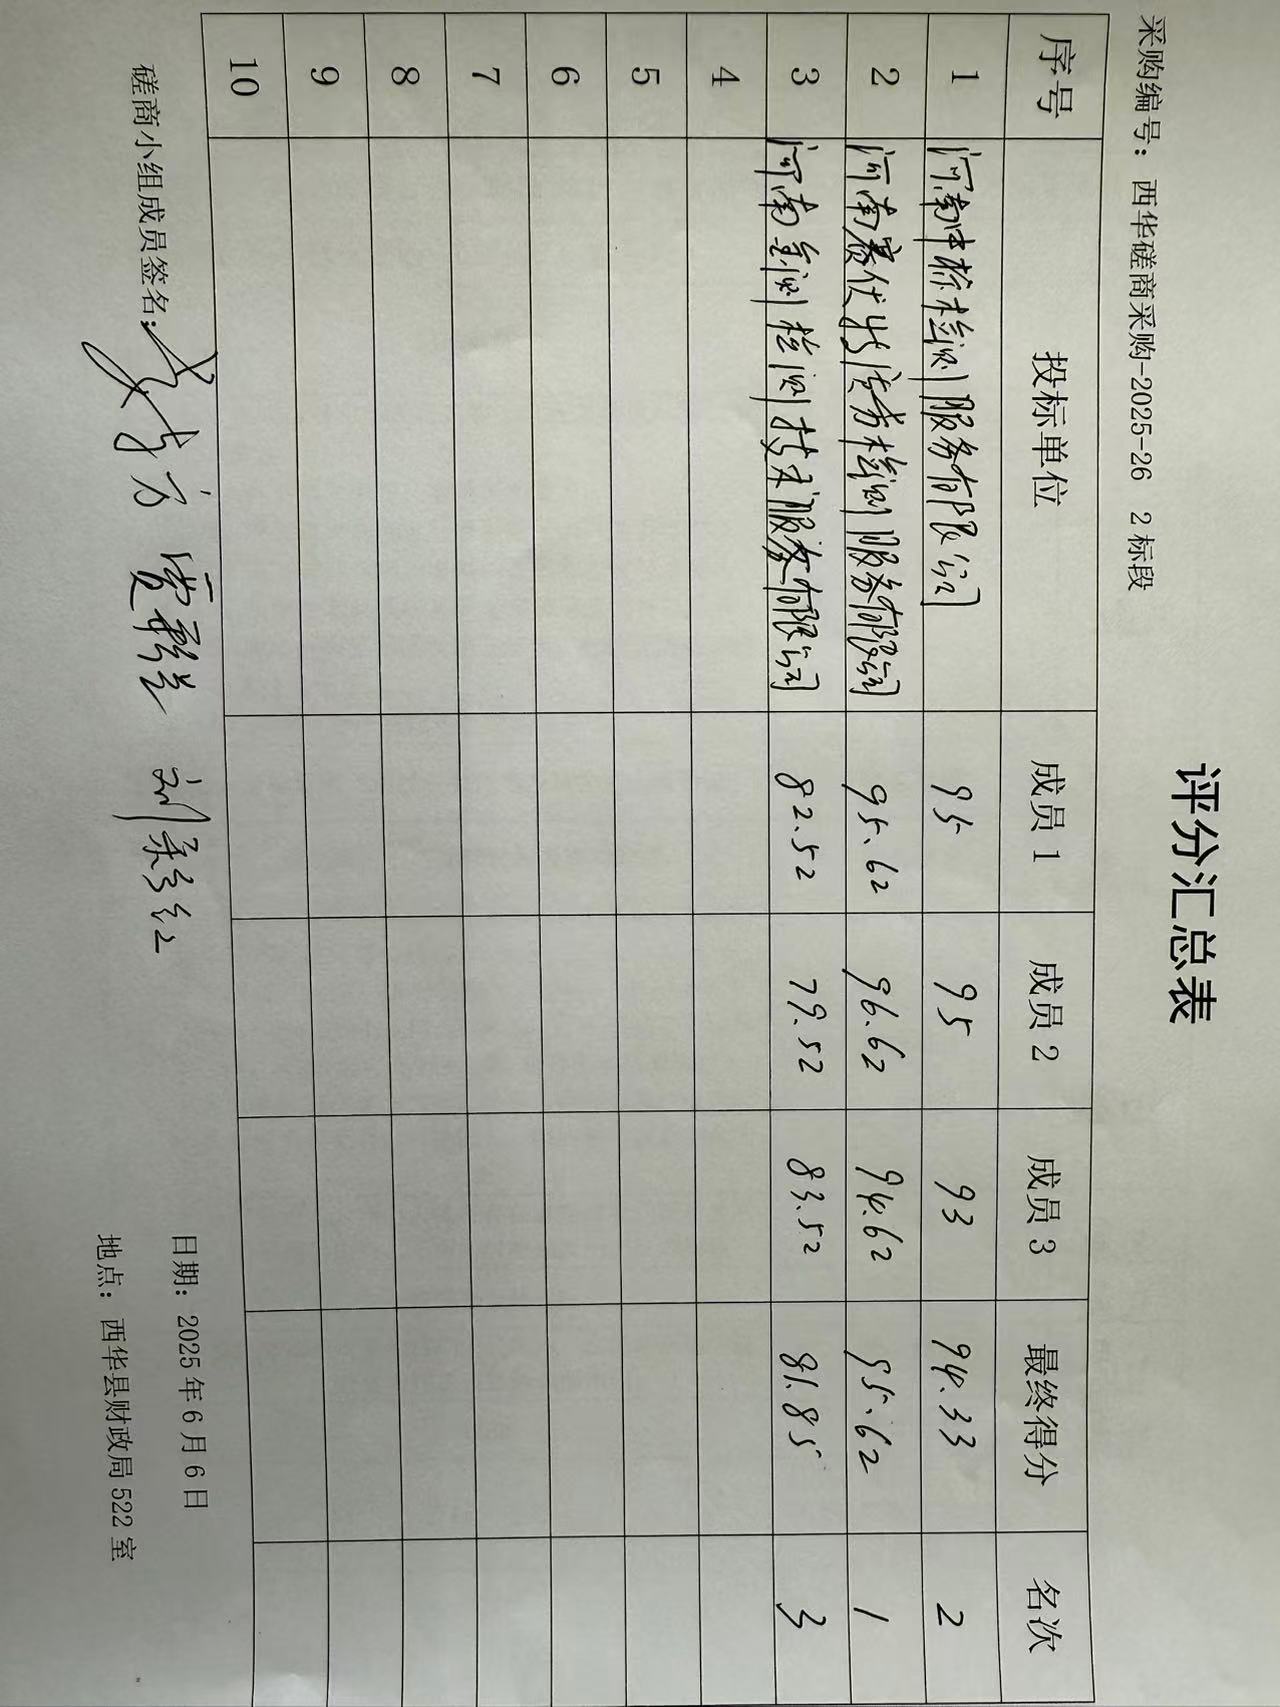 评分汇总表
采购编号：西华磋商采购-2025-26 2标段
序号 投标单位 成员1 成员2 成员3 最终得分 名次
1 河南中标检测服务有限公司 95 95 93 94.33 2
2 河南赛优特检务检测服务有限公司 95.62 96.62 94.62 95.62 1
3 河南金测检测技术服务有限公司 82.52 79.52 83.52 81.85 3
4
5
6
7
8
9
10
磋商小组成员签名：
日期：2025年6月6日
地点：西华县财政局522室